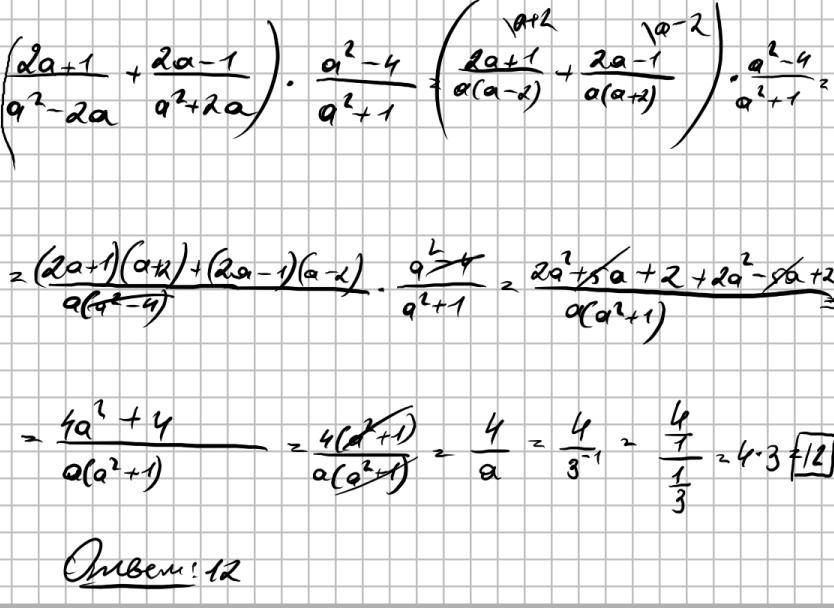 \a+2 \a-2
((2a+1)/(a²-2a) + (2a-1)/(a²+2a)) · (a²-4)/(a²+1) = ((2a+1)/(a(a-2)) + (2a-1)/(a(a+2))) · (a²-4)/(a²+1) =
= ((2a+1)(a+2)+(2a-1)(a-2))/(a(a²-4)) · (a²-4)/(a²+1) = (2a²+5a+2+2a²-5a+2)/(a(a²+1)) =
= (4a²+4)/(a(a²+1)) = 4(a²+1)/(a(a²+1)) = 4/a = 4/3⁻¹ = (4/1)/(1/3) = 4·3 = 12
Ответ: 12